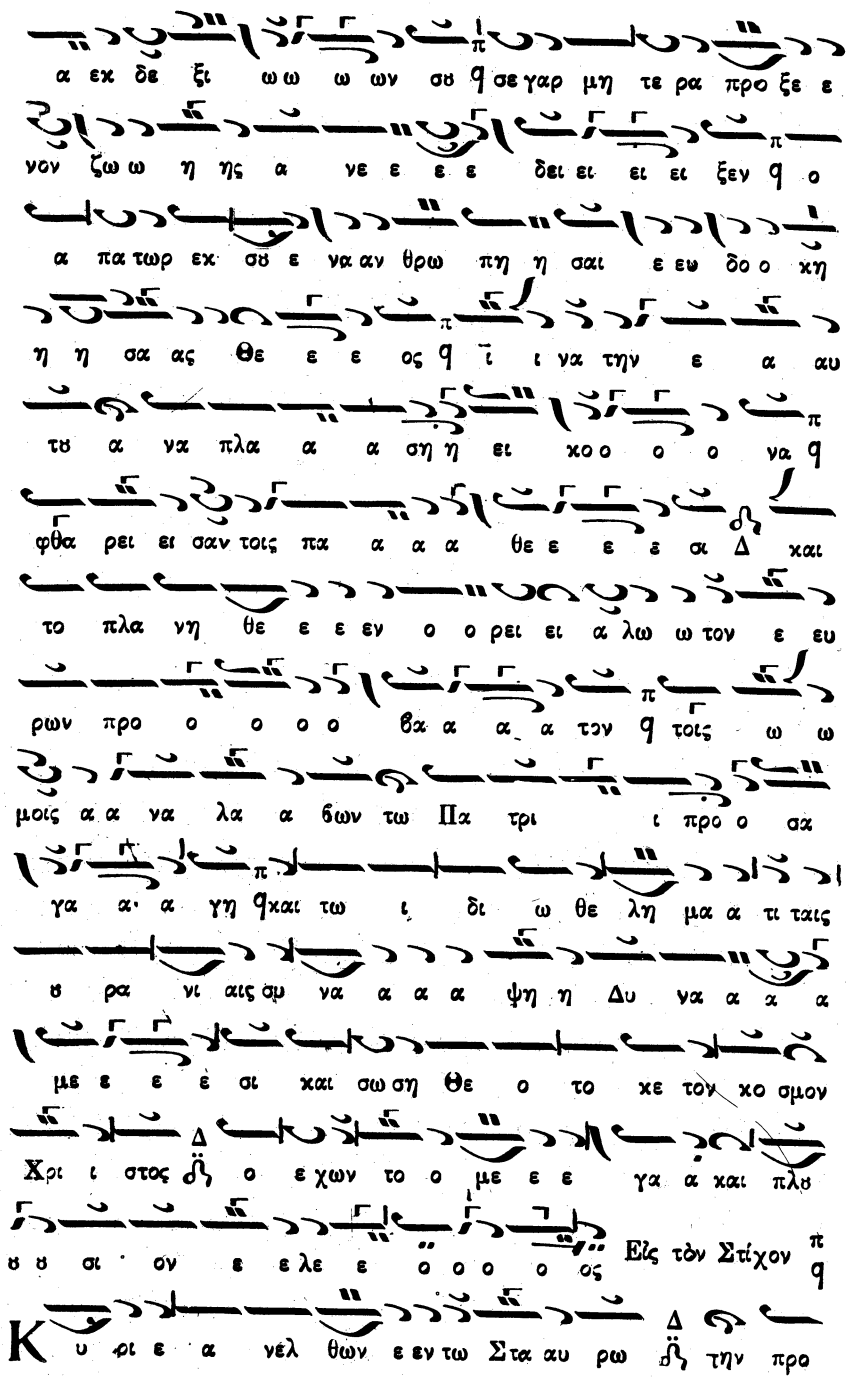 α εκ δε ξι ω ω ω ων σȣ π̇ϥ σε γαρ μη τε ρα προ ξε ε
νον ζω ω η ης α νε ε ε ε δει ει ει ει ξεν π ϥ ο
α πα τωρ εκ σȣ ε να αν θρω πη η σαι ε ευ δο ο κη
η η σα ας Θε ε ε ος π ϥ ϊ ι να την ε α αυ
τȣ α να πλα α α ση η ει κο ο ο ο να π ϥ
φθα ρει ει σαν τοις πα α α α θε ε ε ε σι Δ και
το πλα νη θε ε ε εν ο ο ρει ει α λω ω τον ε ευ
ρων προ ο ο ο ο βα α α α τον π ϥ τοις ω ω
μοις α α να λα α βων τω Πα τρι ι προ ο σα
γα α α γη π ϥ και τω ι δι ω θε λη μα α τι ταις
ȣ ρα νι αις συ να α α α ψη η Δυ να α α α
με ε ε ε σι και σω ση Θε ο το κε τον κο σμον
Χρι ι στος Δ ο ε χων το ο με ε ε γα α και πλȣ
ȣ ȣ σι ον ε ε λε ε ο ο ο ο ος Εἰς τὸν Στίχον π ϥ
Κ υ ρι ε α νέλ θων ε εν τω Στα αυ ρω Δ την προ